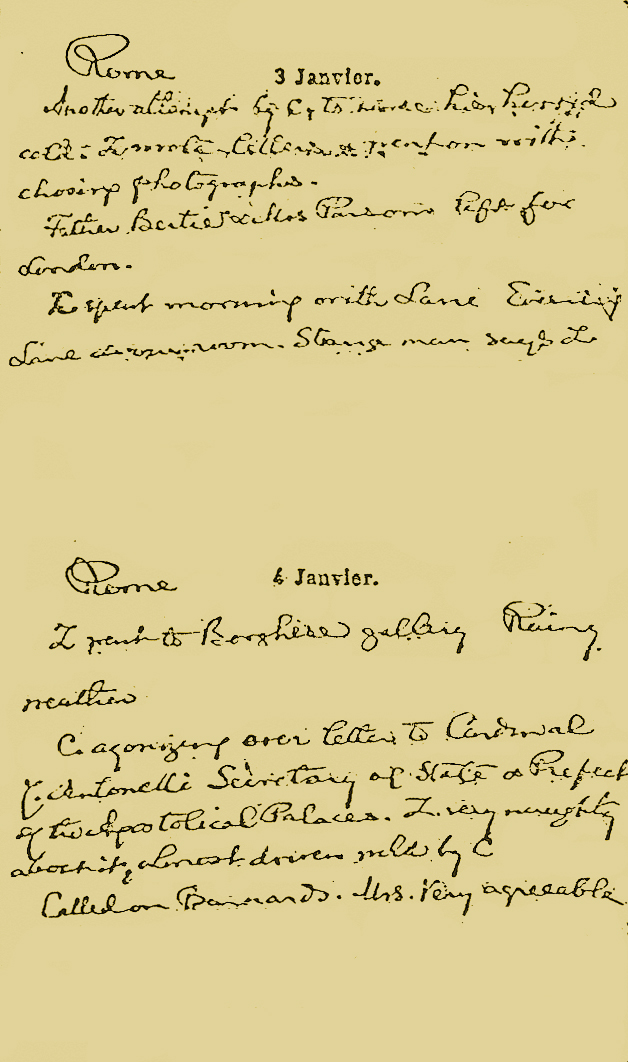 Rome
3 Janvier.
Another attempt by C, to nurse his horrid
cold. I wrote letters & went on with
chosing photographs.
Father Bertie & Mrs Parsons left for
London.
I spent morning with Lane Evening
Lane
man says I
Rome
4 Janvier.
I went to Borghese gallery Rainy
weather
C. agonizing over letter to Cardinal
J. Antonelli Secretary of State & Prefect
of the Apostolical Palaces. I very naughty
about it, almost driven wild by C
Called on Barnards. Mrs. very agreeable